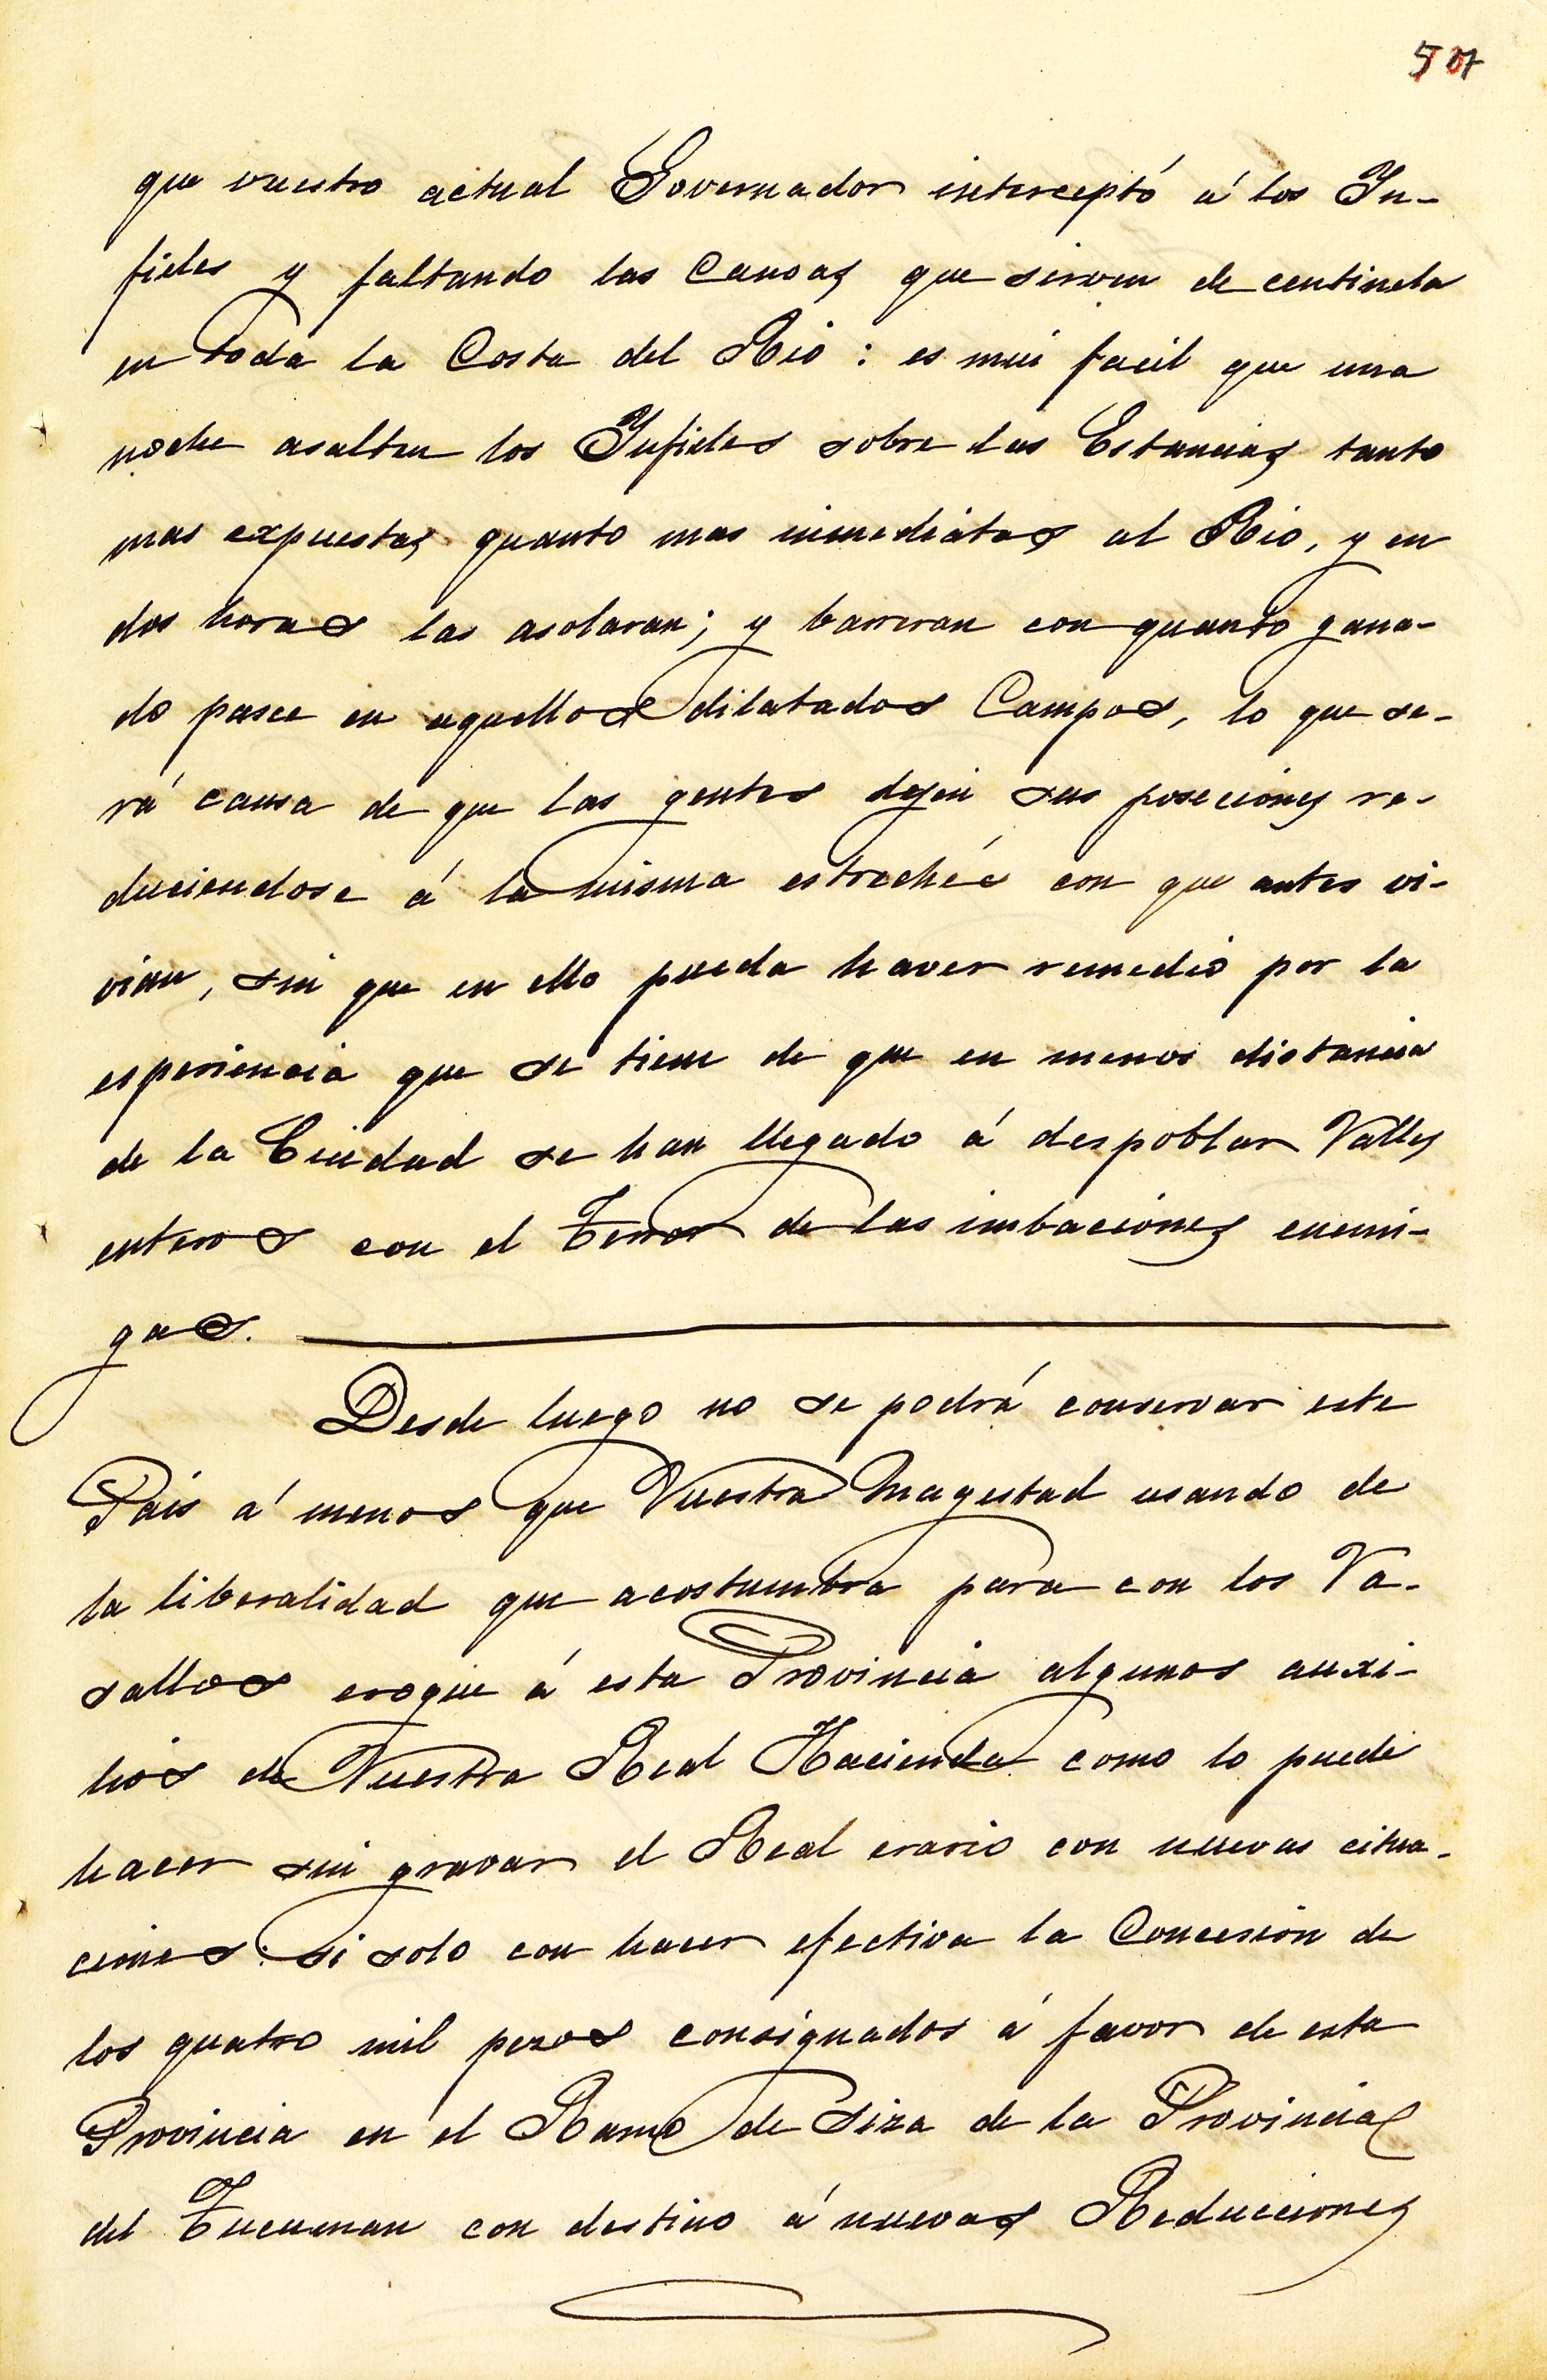 507
que vuestro actual Governador interceptó á los In-
fieles y faltando las Canoas que sirven de centinela
en toda la Costa del Rio: es mui facil que una
noche asalten los Infieles sobre las Estancias tanto
mas expuestas quanto mas inmediatas al Rio, y en
dos horas las asolaran; y barreran con quanto gana-
do pasce en aquellos dilatados Campos, lo que se-
rá causa de que las gentes dejen sus poseciones re-
duciendose á la misma estrechéc con que antes vi-
vian, sin que en ello pueda haver remedio por la
esperiencia que se tiene de que en menos distancia
de la Ciudad se han llegado á despoblar Valles
enteros con el Terror de las imbaciones enemi-
gas.
Desde luego no se podrá conservar este
Pais á menos que Vuestra Magestad usando de
la liberalidad que acostumbra para con los Va-
sallos erogue á esta Provincia algunos auxi-
lios de Vuestra Real Hacienda como lo puede
hacer sin gravar el Real erario con nuevas citua-
ciones: si solo con hacer efectiva la Concesion de
los quatro mil pezos consignados á favor de esta
Provincia en el Ramo de Siza de la Provincia
del Tucuman con destino á nuevas Reducciones